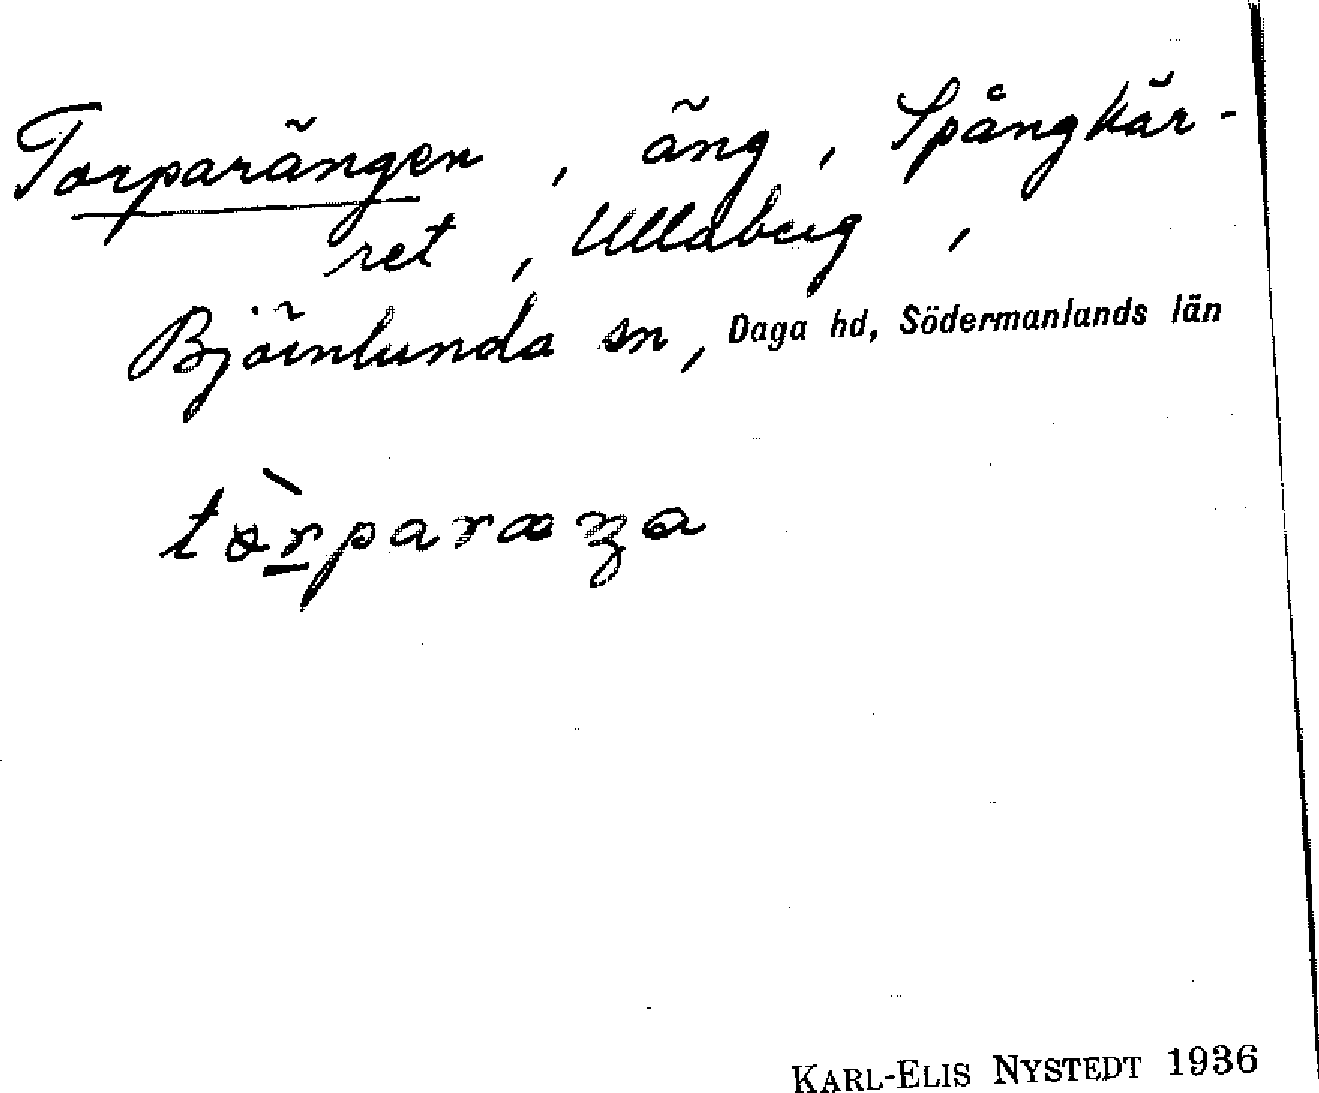 Torparängen, äng, Spångkär-
ret, Ullaberg,
Björnlunda sn, Daga hd, Södermanlands län
tɔ̀r̲paræŋa
KARL-ELIS NYSTEDT 1936